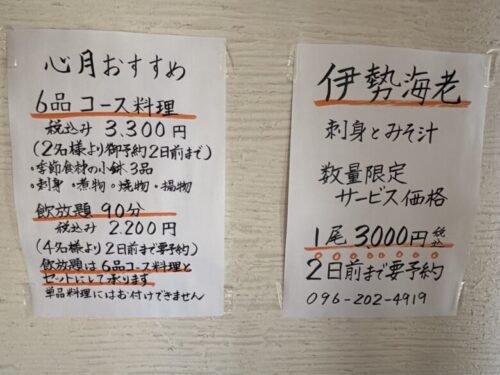 心月おすすめ
6品 コース料理
税込み 3,300円
(2名様より御予約2日前まで)
・季節食材の小鉢3品
・刺身・煮物・焼物・揚物
飲放題 90分
税込み 2,200円
(4名様より2日前まで要予約)
飲放題は6品コース料理と
セットにして承ります
単品料理にはお付けできません
伊勢海老
刺身とみそ汁
数量限定
サービス価格
1尾 3,000円 税込
2日前まで要予約
096-202-4919